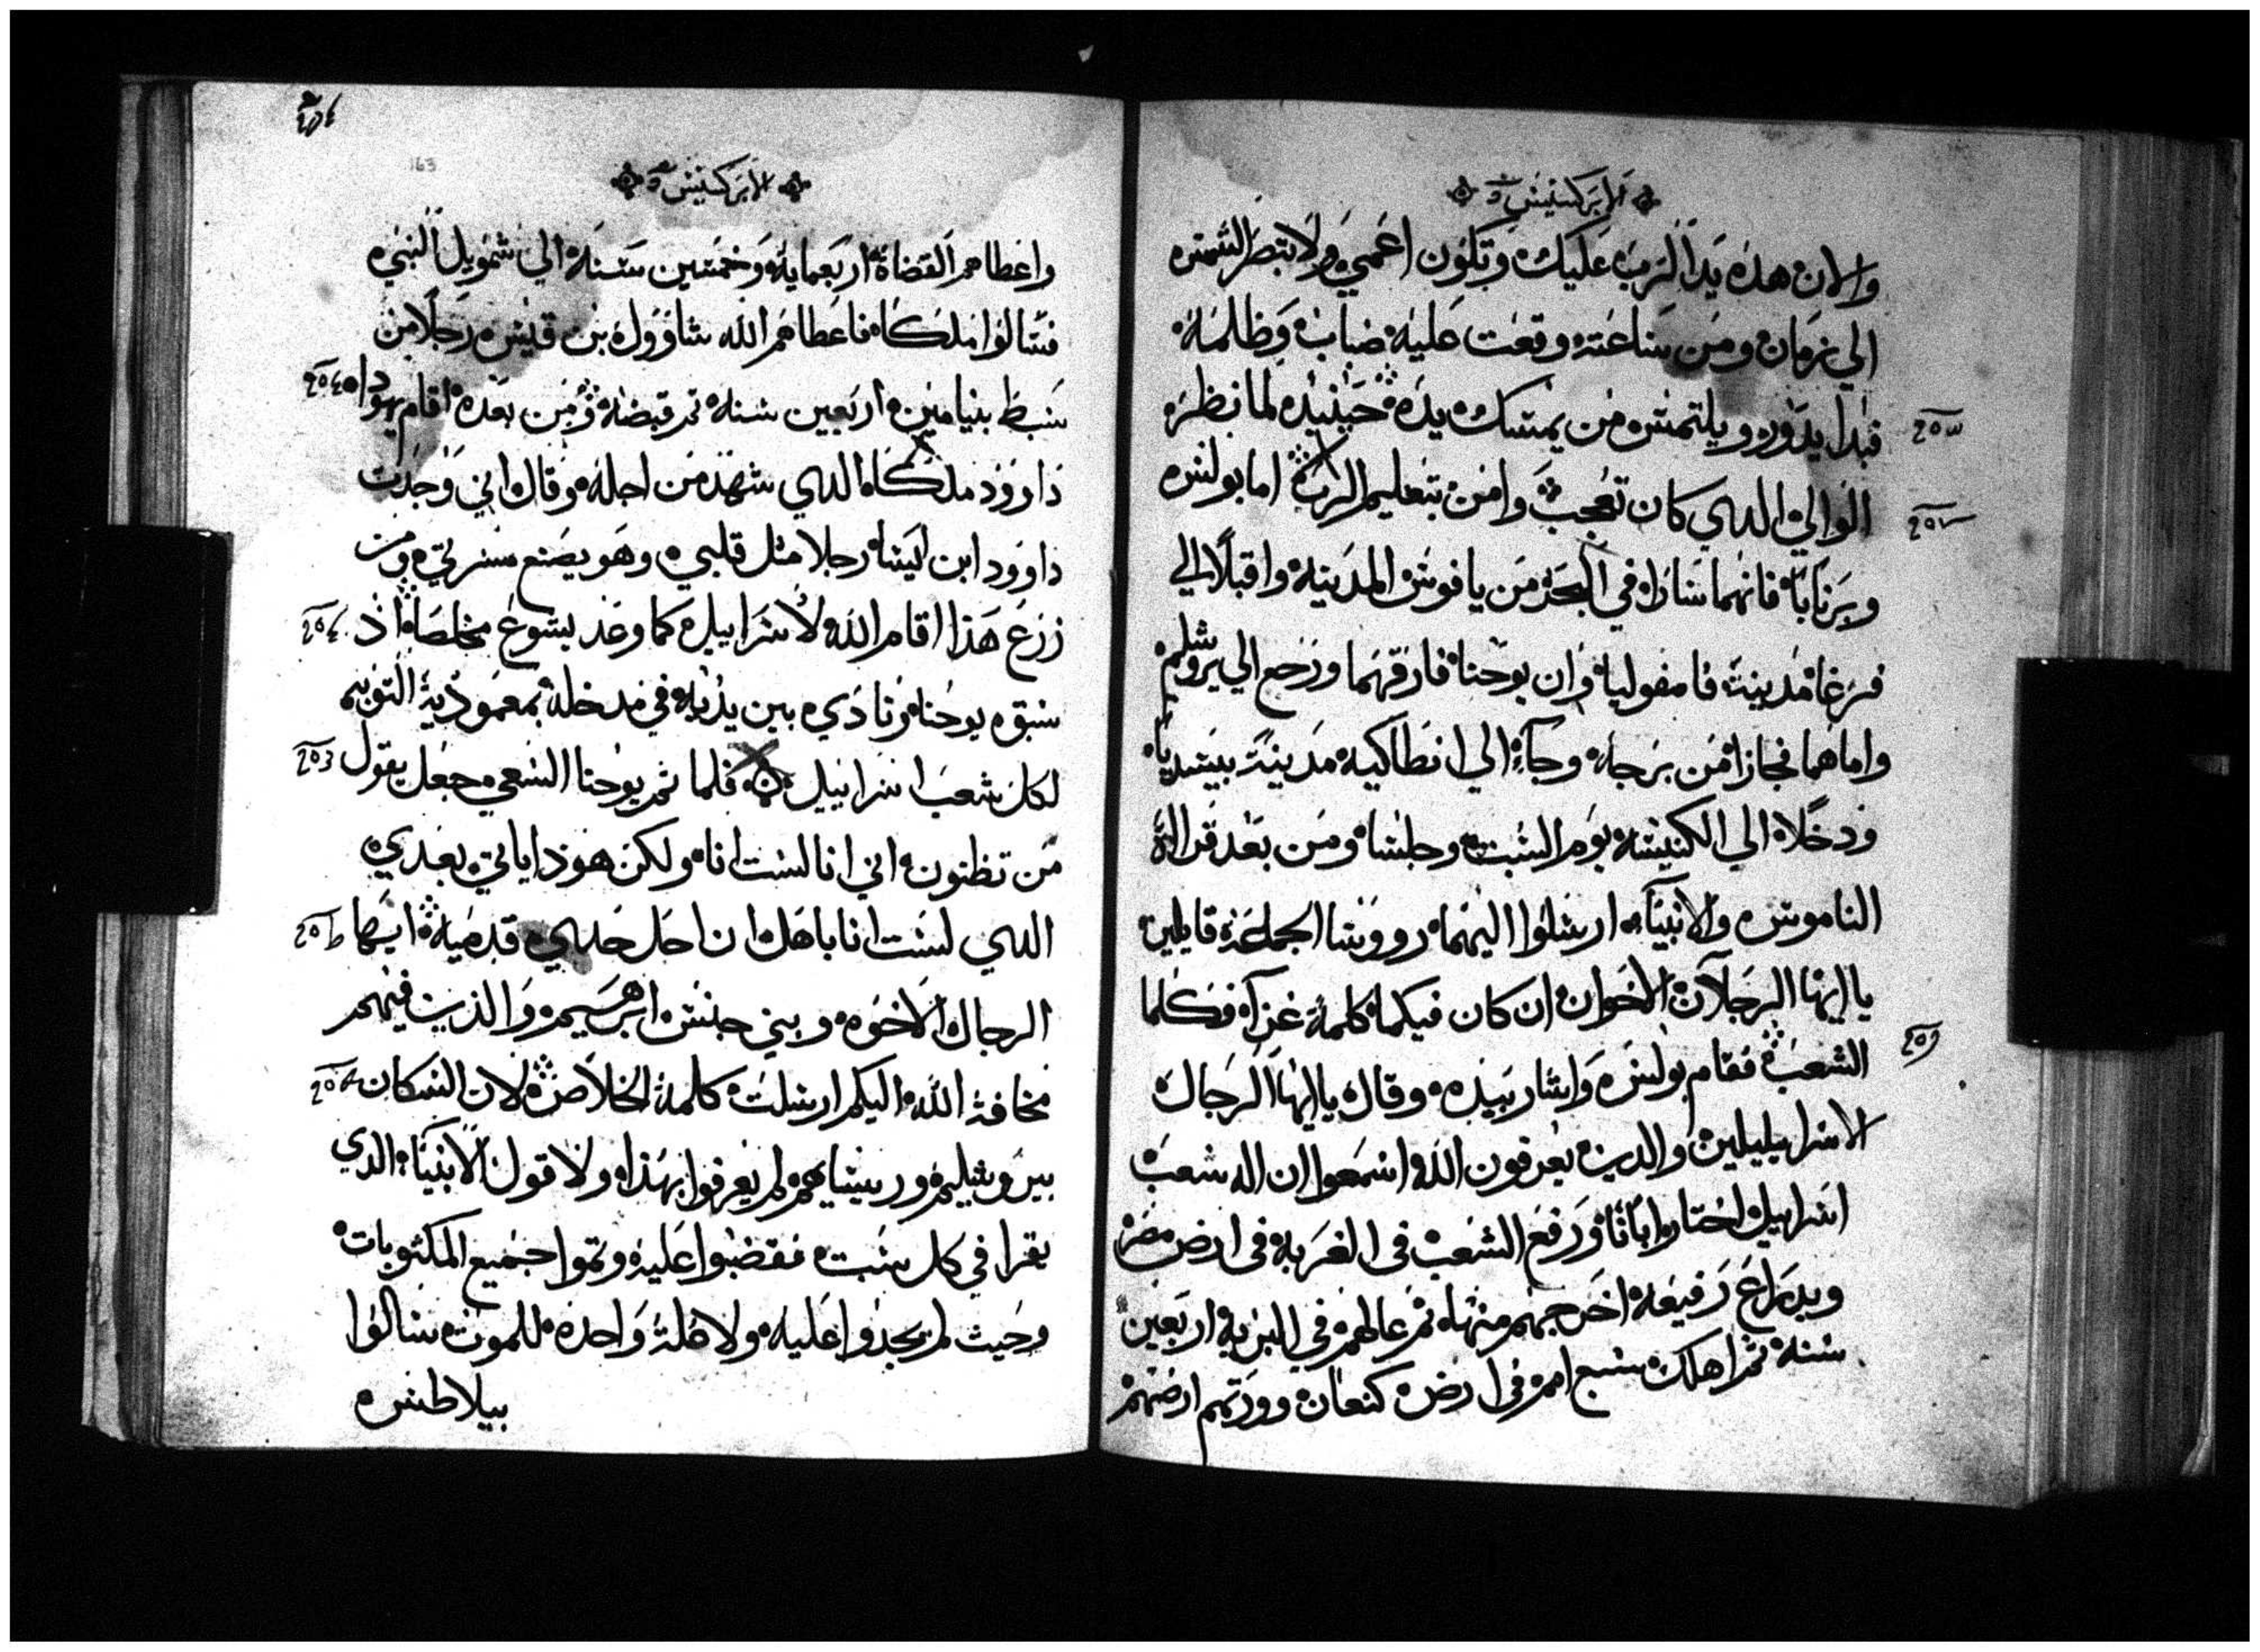 الابركسيس
والان هذه يد الرب عليك وتكون اعمي ولا تبصر الشمس
الي زمان ومن ساعته وقعت عليه ضباب وظلمه
فبدا يدور ويلتمس من يمسك يده حينيذ لما نظر
الوالي الدي كان تعجب وامن بتعليم الرب اما بولس
وبرنابا فانهما سارا في البحر من يافوس المدينه واقبلا الي
فرغا مدينة فامفوليا وان يوحنا فارقهما ورجع الي يروشليم
واما هما فجازا من برجا وجاء الي انطاكيه مدينة بيسديا
ودخلا الي الكنيسه يوم السبت وجلسا ومن بعد قراة
الناموس والانبياء ارسلوا اليهما رووسا الجماعه قايلين
يا ايها الرجلان الاخوان ان كان فيكما كلمة عزاء فكلما
الشعب فقام بولس واشار بيده وقال يا ايها الرجال
الاسراييليين والدين يعرفون الله اسمعوا ان اله شعب
اسراييل اختار ابانا ورفع الشعب في الغربه في ارض مصر
وبدراع رفيعه اخرجهم منها ثم عالهم في البريه اربعين
سنه ثم اهلك سبع امم في ارض كنعان وورثهم ارضهم
163
الابركسيس
واعطاهم القضاة اربعمايه وخمسين سنه الي شمويل النبي
فسالوا ملكا فاعطاهم الله شاوول بن قيس رجلا من
سبط بنيامين اربعين سنه ثم قبضه ومن بعده اقام يهودا
داوود ملكا الدي شهد من اجله وقال اني وجدت
داوود ابن ليسا رجلا مثل قلبي وهو يصنع مسرتي ومن
زرع هذا اقام الله لاسراييل كما وعد يسوع مخلصا اذ
سبق يوحنا ونادي بين يديه في مدخله بمعمودية التوبه
لكل شعب اسراييل فلما تم يوحنا السعي جعل يقول
من تظنون اني انا لست انا ولكن هوذا ياتي بعدي
الدي لست انا باهل ان احل حدي قدميه ايها
الرجال الاخوه وبني جنس ابرهيم والذين فيهم
مخافة الله اليكم ارسلت كلمة الخلاص لان السكان
بيروشليم وريساهم لم يعرفوا بهذا ولا قول الانبياء الذي
يقرا في كل سبت فقضوا عليه وتموا جميع المكتوبات
وحيث لم يجدوا عليه ولا علة واحده للموت سالوا
بيلاطس